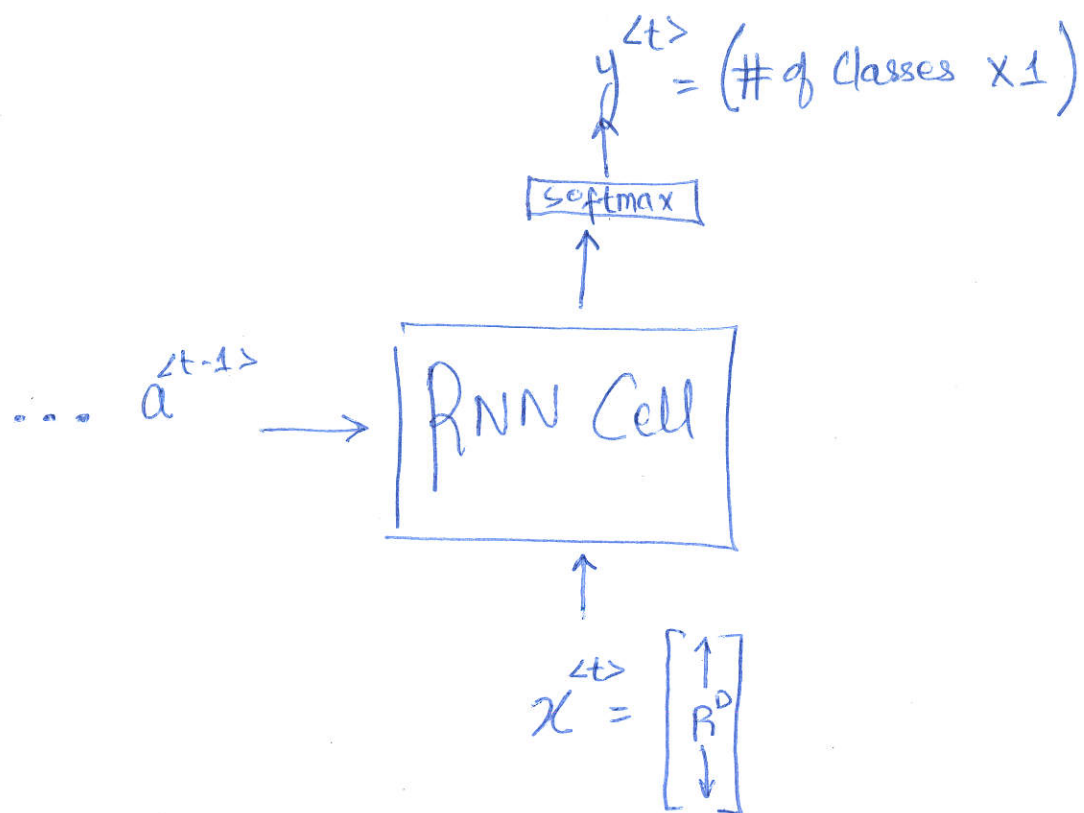 y<t> = (# of Classes X1)
softmax
... a<t-1>
RNN Cell
x<t> = [R^D]